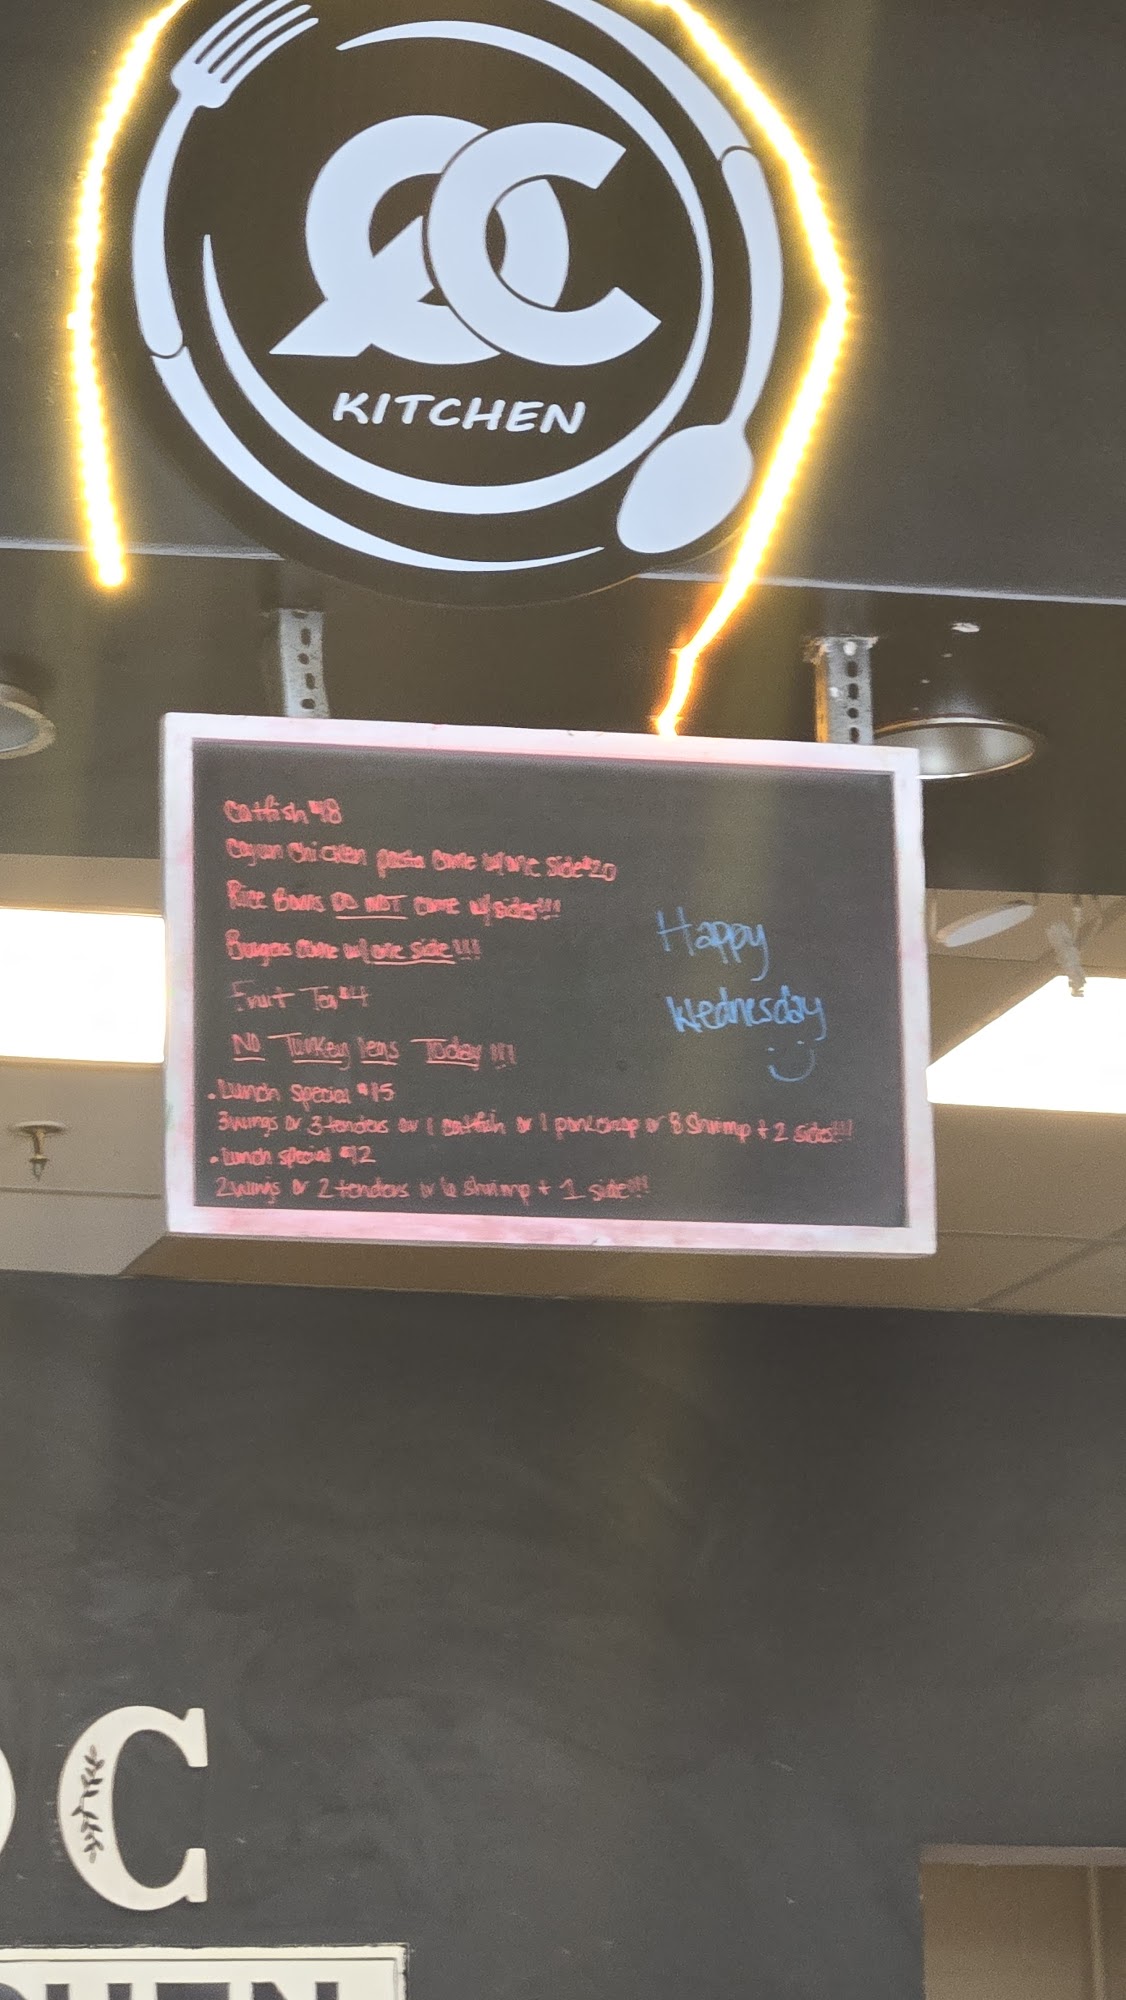 QC
KITCHEN
Catfish $18
Cajun Chicken pasta come w/one side $20
Rice Bowls DO NOT come w/sides!!!
Burgers come w/ one side!!!
Fruit Tea $4
NO Turkey legs Today!!!
Happy
Wednesday
• Lunch Special $15
3 wings or 3 tenders or 1 catfish or 1 porkchop or 8 Shrimp + 2 sides!!!
• Lunch special $12
2 wings or 2 tenders or 6 shrimp + 1 side!!!
C